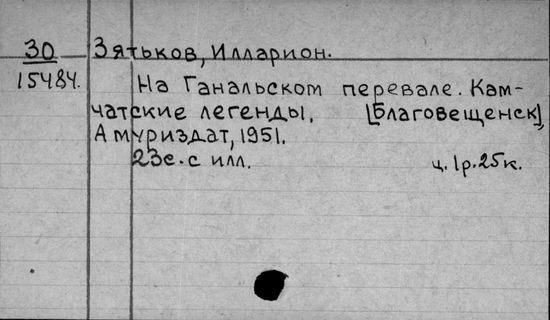 30 Зятьков, Илларион.
15484. На Ганальском перевале. Кам-
чатские легенды. [Благовещенск],
Амуриздат, 1951.
23с. с илл. ц. 1р. 25к.